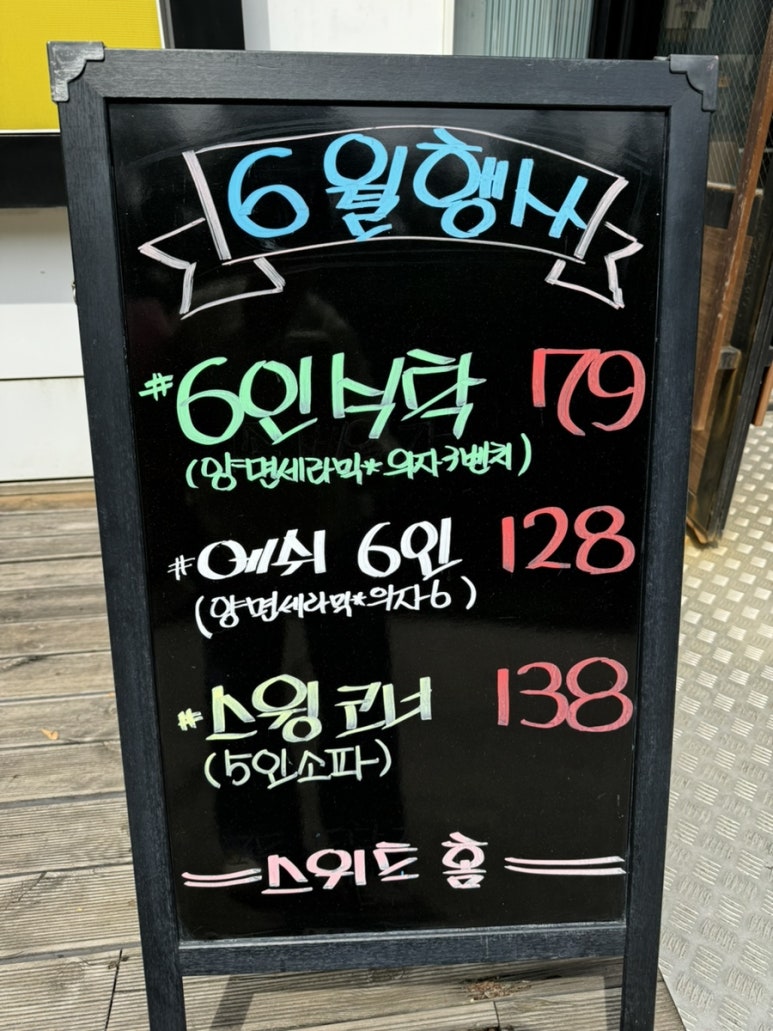 6월행사
#6인식탁 79
(양면세라믹*의자3벤치)
#에쉬 6인 128
(양면세라믹*의자6)
#스윙코너 138
(5인소파)
스위트 홈